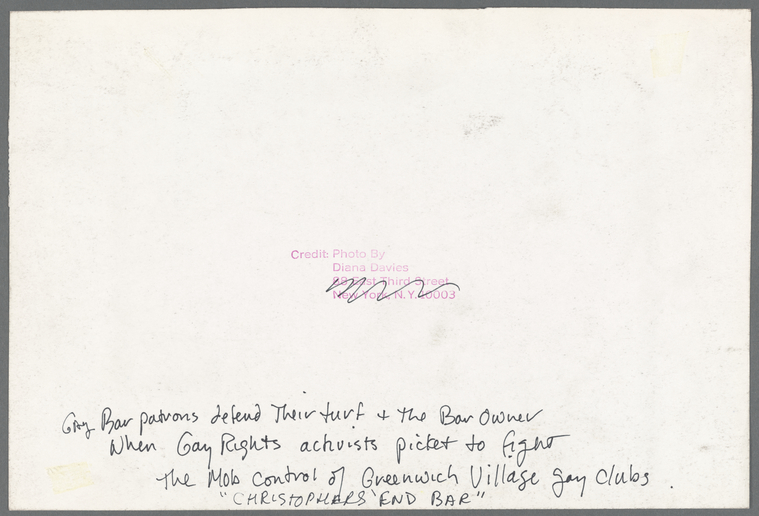 Credit: Photo By
Diana Davies
89 East Third Street
New York, N.Y. 10003
Gay Bar patrons defend Their turf + the Bar Owner
When Gay Rights activists picket to fight
the Mob control of Greenwich Village gay clubs.
"CHRISTOPHERS END BAR"